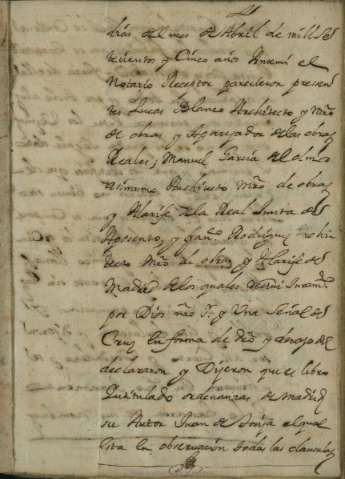 dias del mes de Abril de mill Se
tecientos y Cinco años Antemi el
Notario Receptor parecieron presen
tes Lucas Blanco Architecto y Mro
de obras y Aparejador de las obras
Reales, Manuel Garcia el
Architecto Mro de obras
y Alarife de la Real Junta de
Aposento, y Rodriguez
Mro de obras y Alarife de
Madrid de los quales Recivi Juramto
por Dios nro Sr y Una Señal de
Cruz en forma de dro y devajo del
declararon y Dijeron que el libro
Yntitulado ordenanzas de Madrid
su Autor Juan de Torija el qual
la observacion todas las clausulas